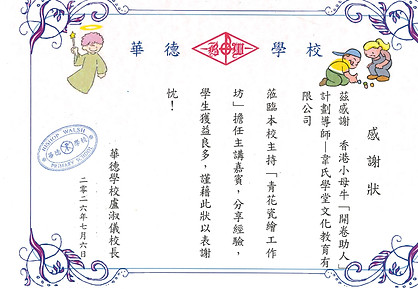 華德學校
感謝狀
茲感謝 香港小母牛「開卷助人」
計劃導師—韋氏學堂文化教育有
限公司
蒞臨本校主持「青花瓷繪工作
坊」擔任主講嘉賓，分享經驗，
學生獲益良多，謹藉此狀以表謝
忱！
華德學校盧淑儀校長
二零二六年七月六日
BISHOP WALSH
華德學校
PRIMARY SCHOOL